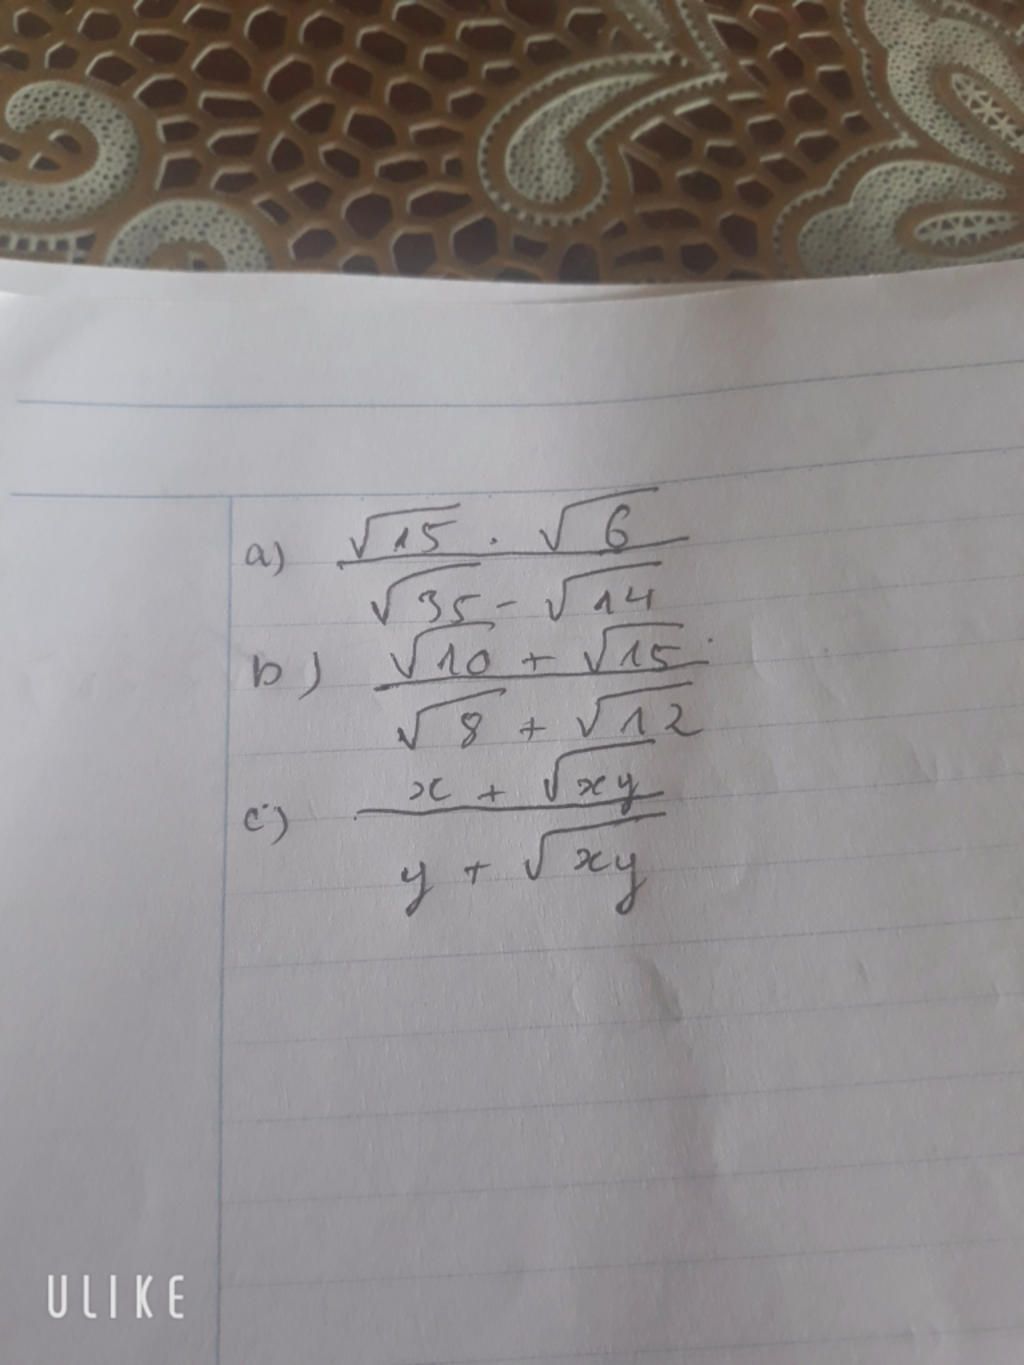 a) √15 . √6
√35 - √14
b) √10 + √15
√8 + √12
c) x + √xy
y + √xy
ULIKE